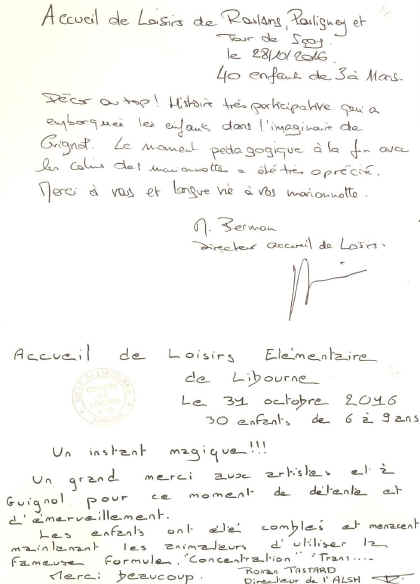 Accueil de Loisirs de Roulans, Pouligney et
Tour de Sçay.
le 28/10/2016
40 enfants de 3 à 11 ans.
Décor au top! Histoire très participative qui a
embarqué les enfants dans l'imaginaire de
Guignol. Le moment pédagogique à la fin avec
les de la marionnette a été très apprécié.
Merci à vous et longue vie à vos marionnette.
M. Bermon
Directeur accueil de Loisirs.
Accueil de Loisirs Elémentaire
de Libourne
Le 31 octobre 2016
30 enfants de 6 à 9 ans
Un instant magique!!!
Un grand merci aux artistes et à
Guignol pour ce moment de détente et
d'émerveillement.
Les enfants ont été comblés et menacent
maintenant les animateurs d'utiliser la
fameuse formule, "Concentration" "Trans....
Merci beaucoup. Ronan TASTARD
Directeur de l'ALSH